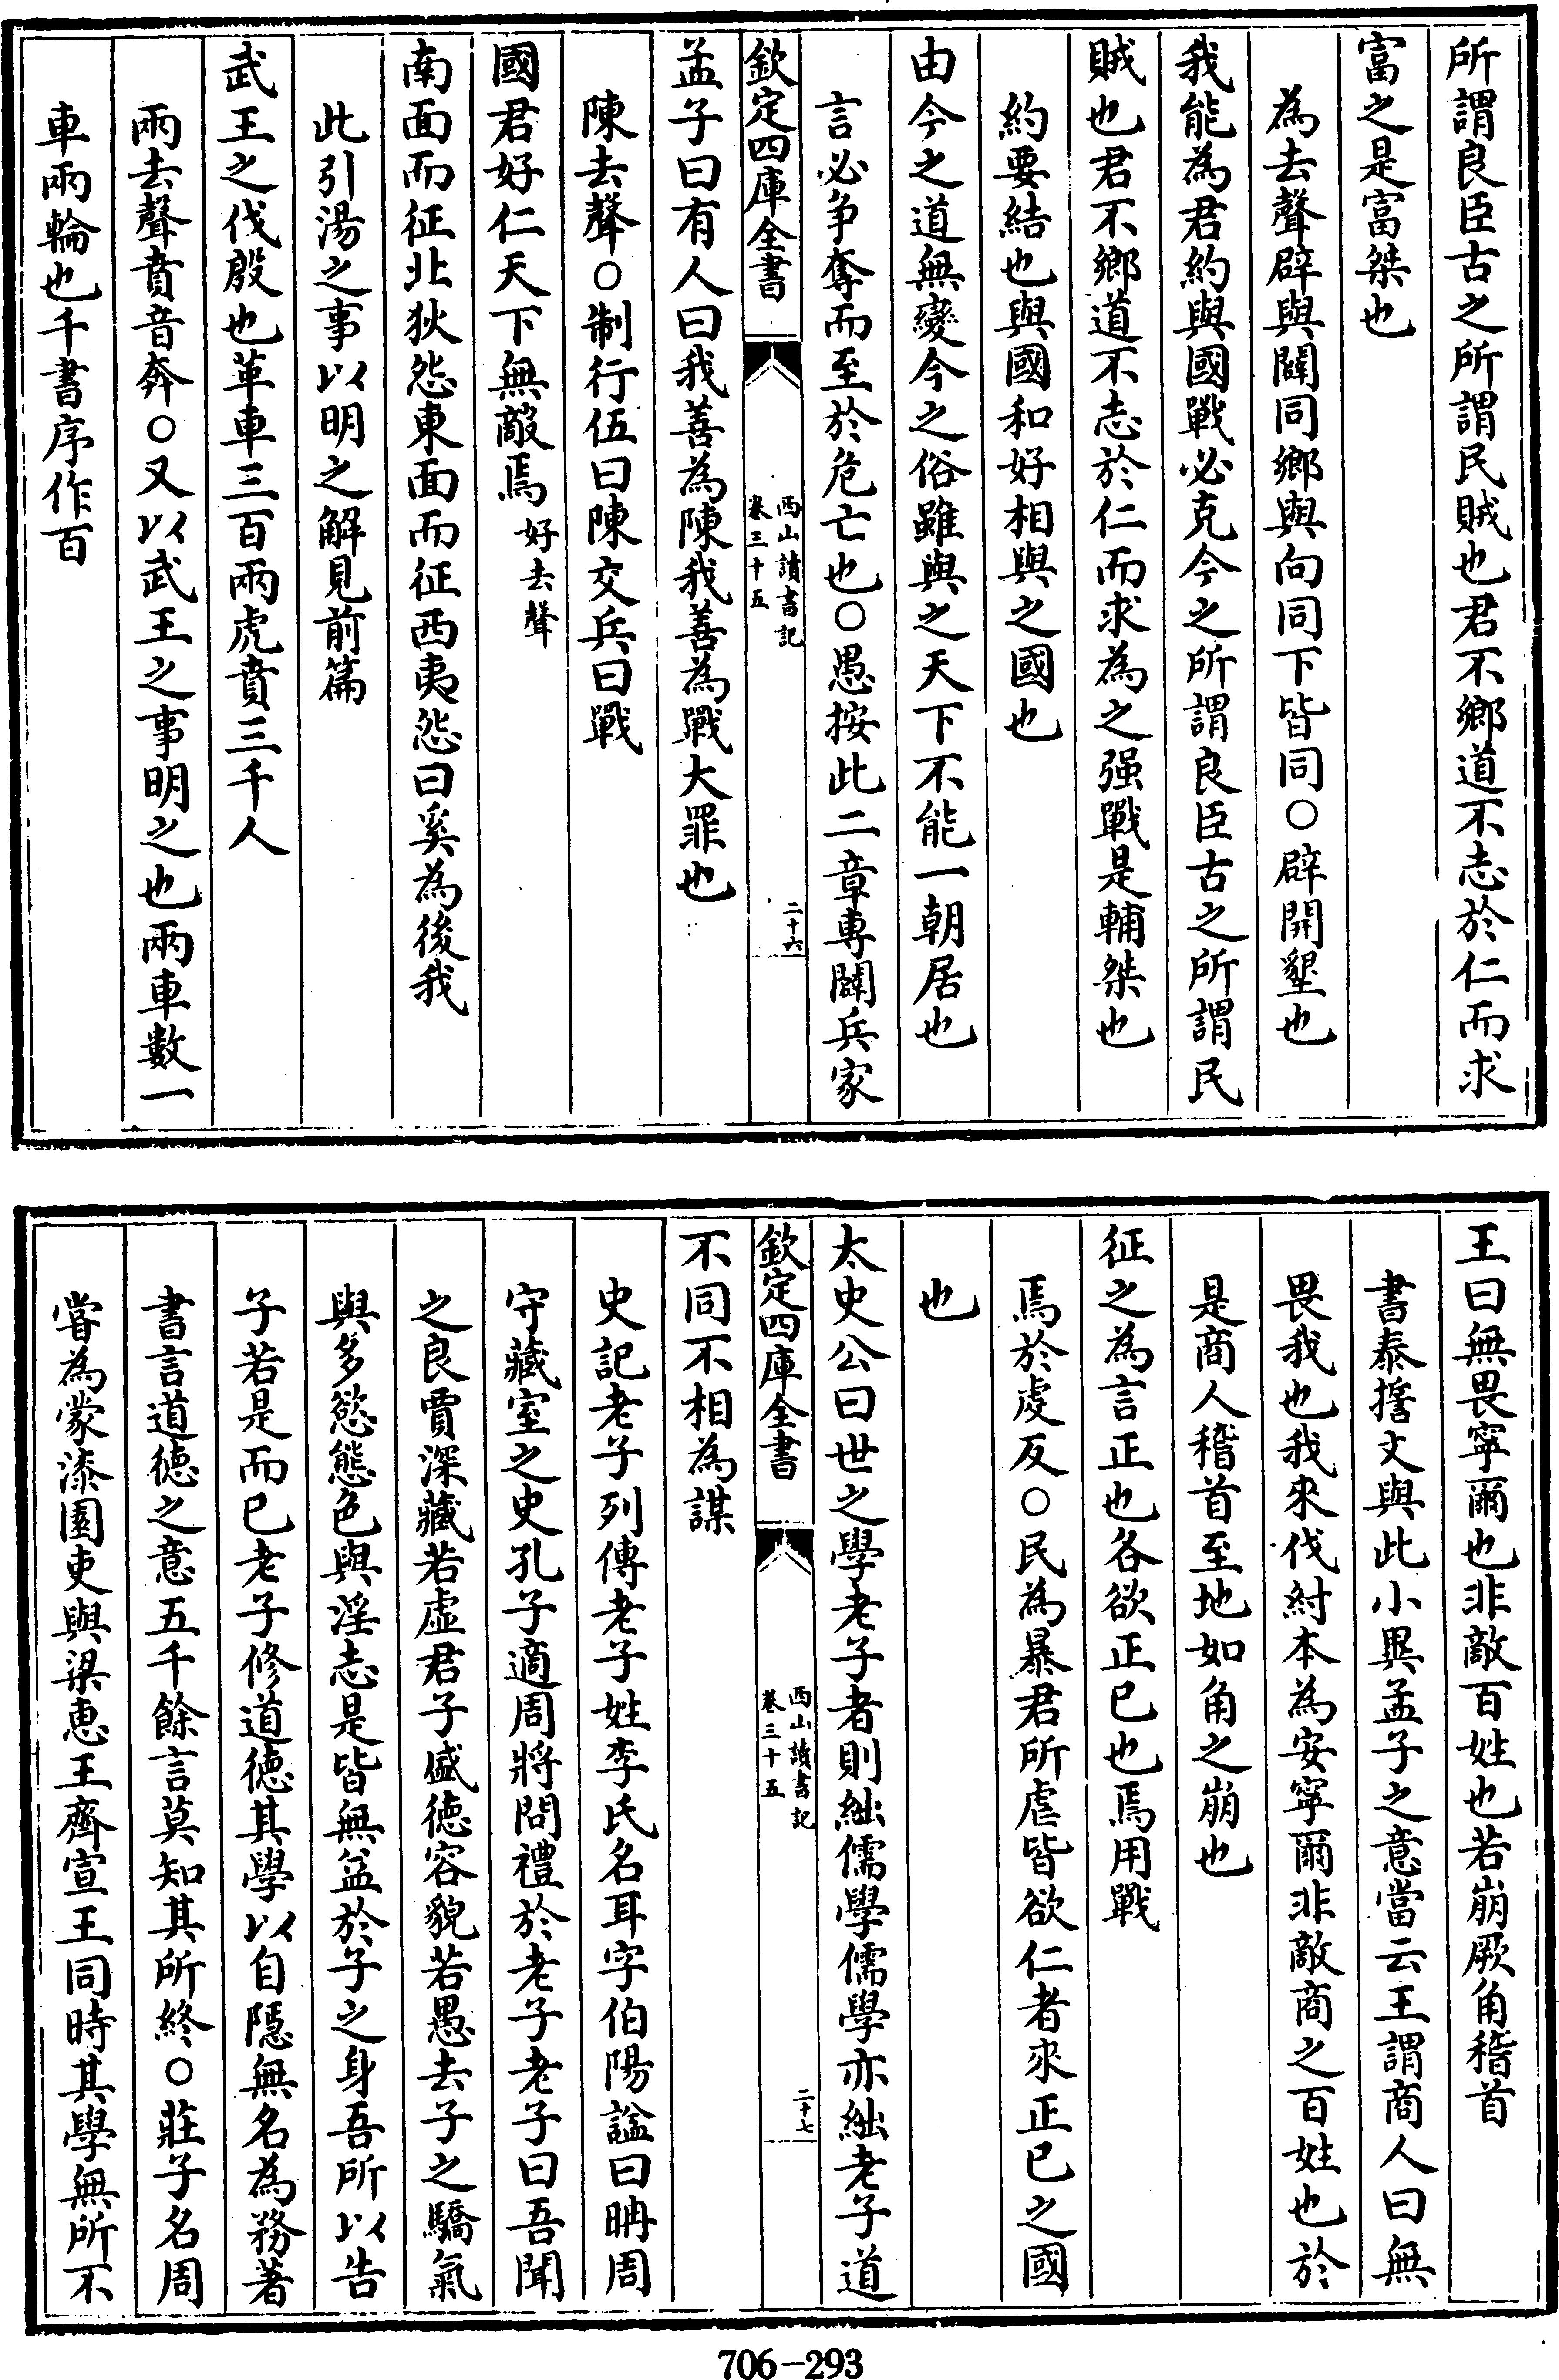 所謂良臣古之所謂民賊也君不鄉道不志於仁而求
富之是富桀也
為去聲辟與闢同鄉與向同下皆同○辟開墾也
我能為君約與國戰必克今之所謂良臣古之所謂民
賊也君不鄉道不志於仁而求為之强戰是輔桀也
約要結也與國和好相與之國也
由今之道無變今之俗雖與之天下不能一朝居也
言必争奪而至於危亡也○愚按此二章專闢兵家
欽定四庫全書
西山讀書記
卷三十五
二十六
孟子曰有人曰我善為陳我善為戰大罪也
陳去聲○制行伍曰陳交兵曰戰
國君好仁天下無敵焉好去聲
南面而征北狄怨東面而征西夷怨曰奚為後我
此引湯之事以明之解見前篇
武王之伐殷也革車三百兩虎賁三千人
兩去聲賁音奔○又以武王之事明之也兩車數一
車兩輪也千書序作百
王曰無畏寧爾也非敵百姓也若崩厥角稽首
書泰誓文與此小異孟子之意當云王謂商人曰無
畏我也我來伐紂本為安寧爾非敵商之百姓也於
是商人稽首至地如角之崩也
征之為言正也各欲正已也焉用戰
焉於虔反○民為暴君所虐皆欲仁者來正已之國
也
太史公曰世之學老子者則絀儒學儒學亦絀老子道
欽定四庫全書
西山讀書記
卷三十五
二十七
不同不相為謀
史記老子列傳老子姓李氏名耳字伯陽諡曰耼周
守藏室之史孔子適周將問禮於老子老子曰吾聞
之良賈深藏若虚君子盛德容貌若愚去子之驕氣
與多慾態色與淫志是皆無益於子之身吾所以告
子若是而已老子修道德其學以自隱無名為務著
書言道德之意五千餘言莫知其所終○莊子名周
甞為蒙漆園吏與梁惠王齊宣王同時其學無所不
706-293